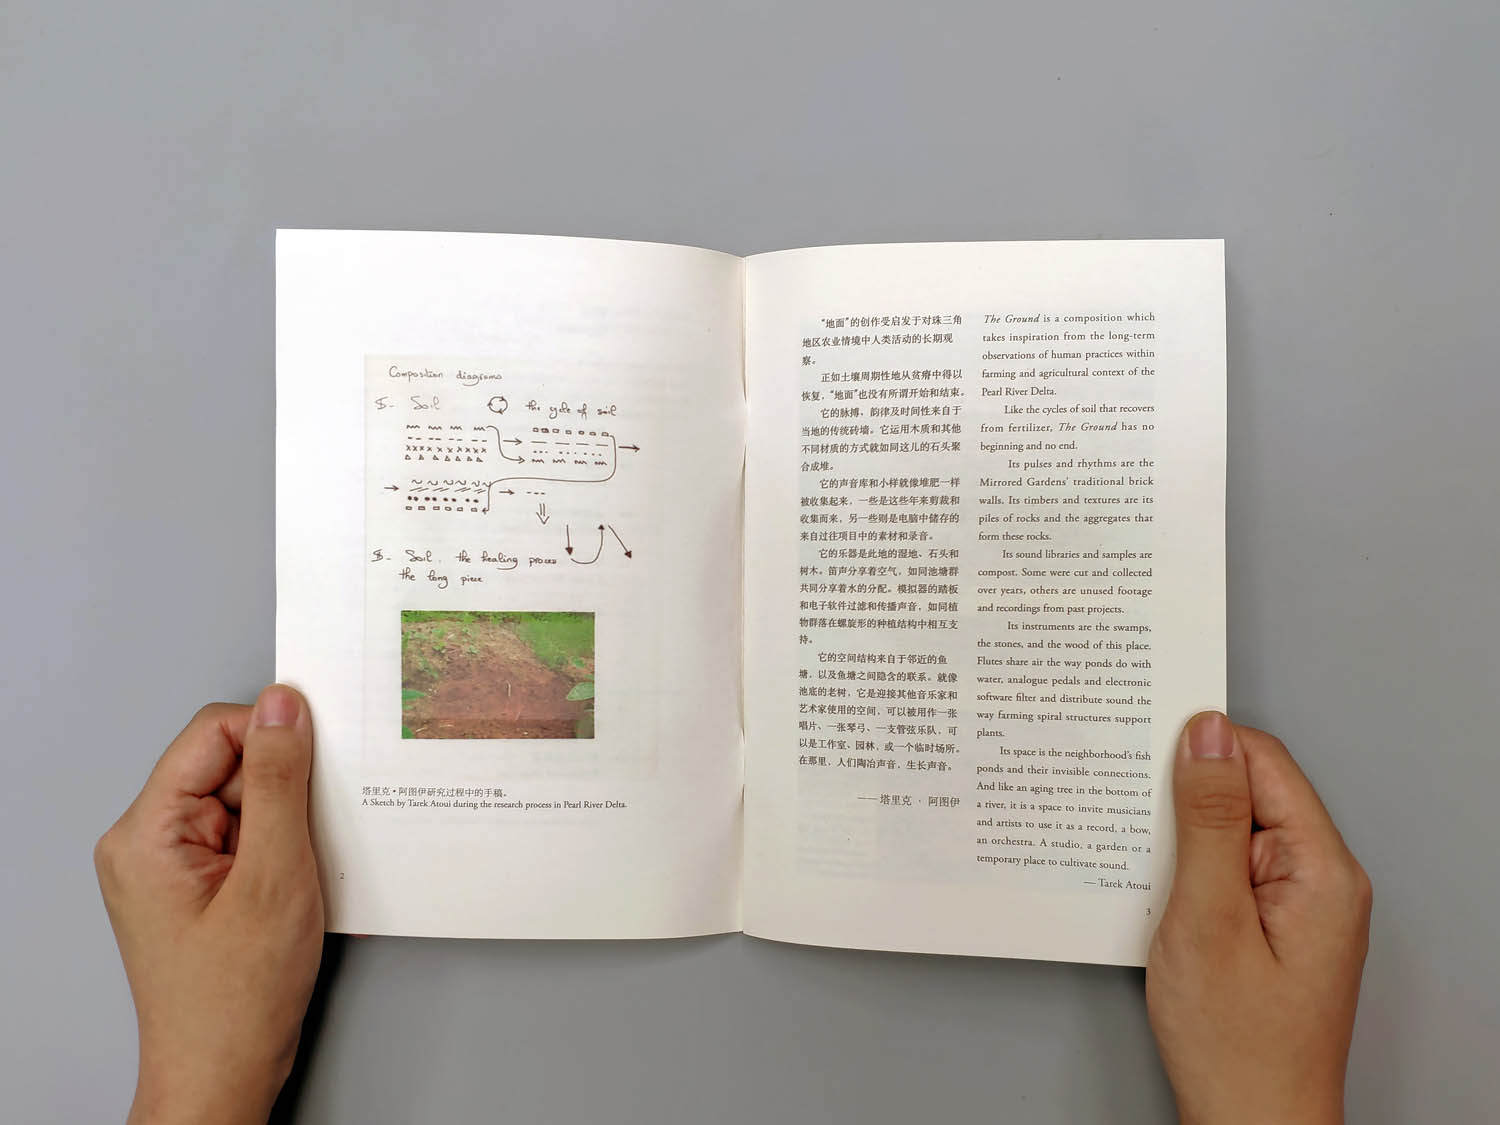 Composition diagrams
$- Soil the cycle of soil
$- Soil, the healing process
the long piece
塔里克·阿图伊研究过程中的手稿。
A Sketch by Tarek Atoui during the research process in Pearl River Delta.
2
“地面”的创作受启发于对珠三角
地区农业情境中人类活动的长期观
察。
正如土壤周期性地从贫瘠中得以
恢复，“地面”也没有所谓开始和结束。
它的脉搏、韵律及时间性来自于
当地的传统砖墙。它运用木质和其他
不同材质的方式就如同这儿的石头聚
合成堆。
它的声音库和小样就像堆肥一样
被收集起来，一些是这些年来剪裁和
收集而来，另一些则是电脑中储存的
来自过往项目中的素材和录音。
它的乐器是此地的湿地、石头和
树木。笛声分享着空气，如同池塘群
共同分享着水的分配。模拟器的踏板
和电子软件过滤和传播声音，如同植
物群落在螺旋形的种植结构中相互支
持。
它的空间结构来自于邻近的鱼
塘，以及鱼塘之间隐含的联系。就像
池底的老树，它是迎接其他音乐家和
艺术家使用的空间，可以被用作一张
唱片、一张琴弓、一支管弦乐队，可
以是工作室、园林，或一个临时场所。
在那里，人们陶冶声音，生长声音。
—— 塔里克 · 阿图伊
The Ground is a composition which
takes inspiration from the long-term
observations of human practices within
farming and agricultural context of the
Pearl River Delta.
Like the cycles of soil that recovers
from fertilizer, The Ground has no
beginning and no end.
Its pulses and rhythms are the
Mirrored Gardens’ traditional brick
walls. Its timbers and textures are its
piles of rocks and the aggregates that
form these rocks.
Its sound libraries and samples are
compost. Some were cut and collected
over years, others are unused footage
and recordings from past projects.
Its instruments are the swamps,
the stones, and the wood of this place.
Flutes share air the way ponds do with
water, analogue pedals and electronic
software filter and distribute sound the
way farming spiral structures support
plants.
Its space is the neighborhood’s fish
ponds and their invisible connections.
And like an aging tree in the bottom of
a river, it is a space to invite musicians
and artists to use it as a record, a bow,
an orchestra. A studio, a garden or a
temporary place to cultivate sound.
— Tarek Atoui
3